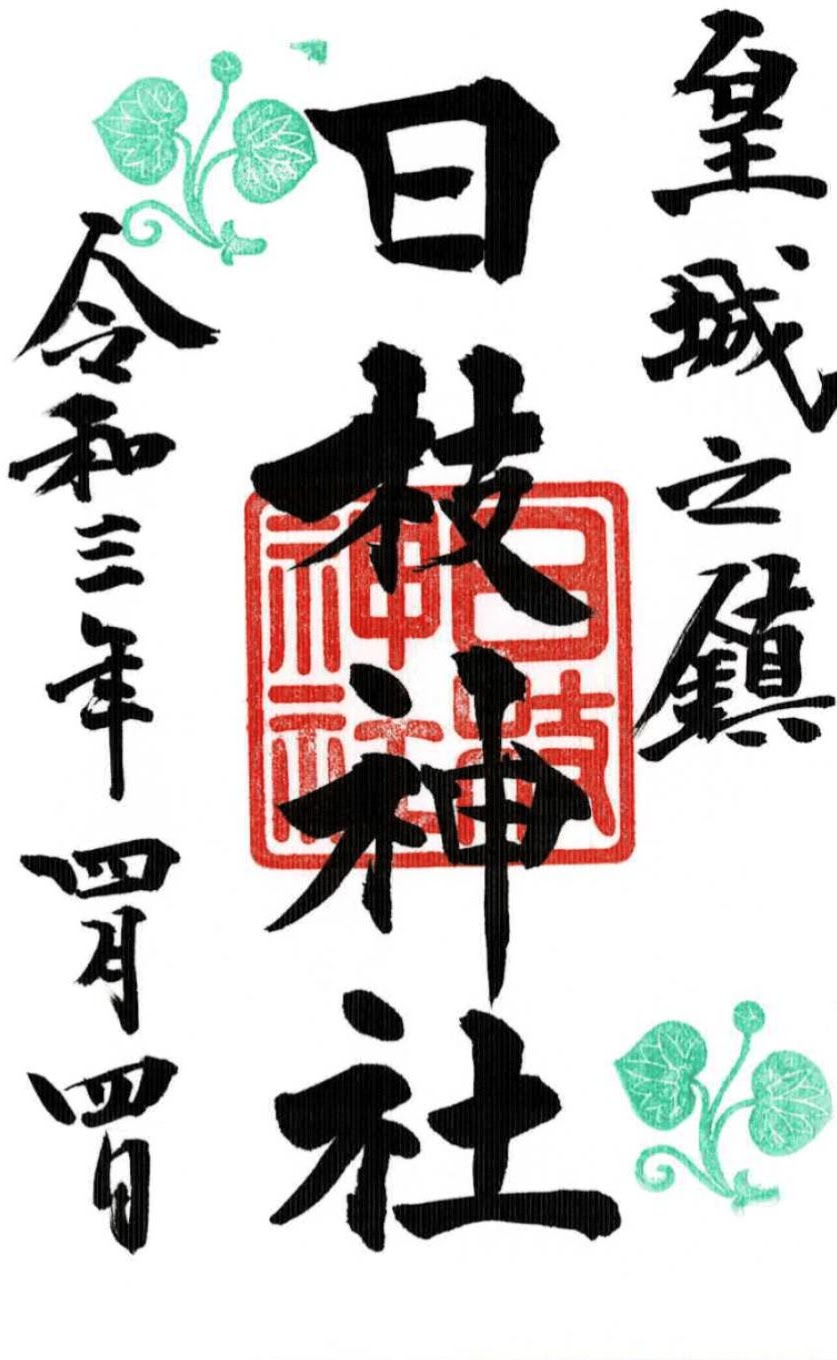 皇城之鎮
日枝神社
日枝
神社
令和三年四月四日